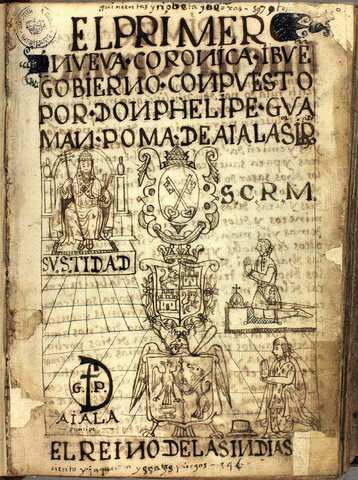 EL PRIMER
NVEVA·CORONICA·IBVEn
GOBIERNO·CONPVESTO
POR·DONPHELIPE·GVA
MAN·POMA·DEAIALA·SIn
S.C.R.M.
SV.S.TIDAD
G. P.
AIALA
principe
EL REINO DE LAS INDIAS